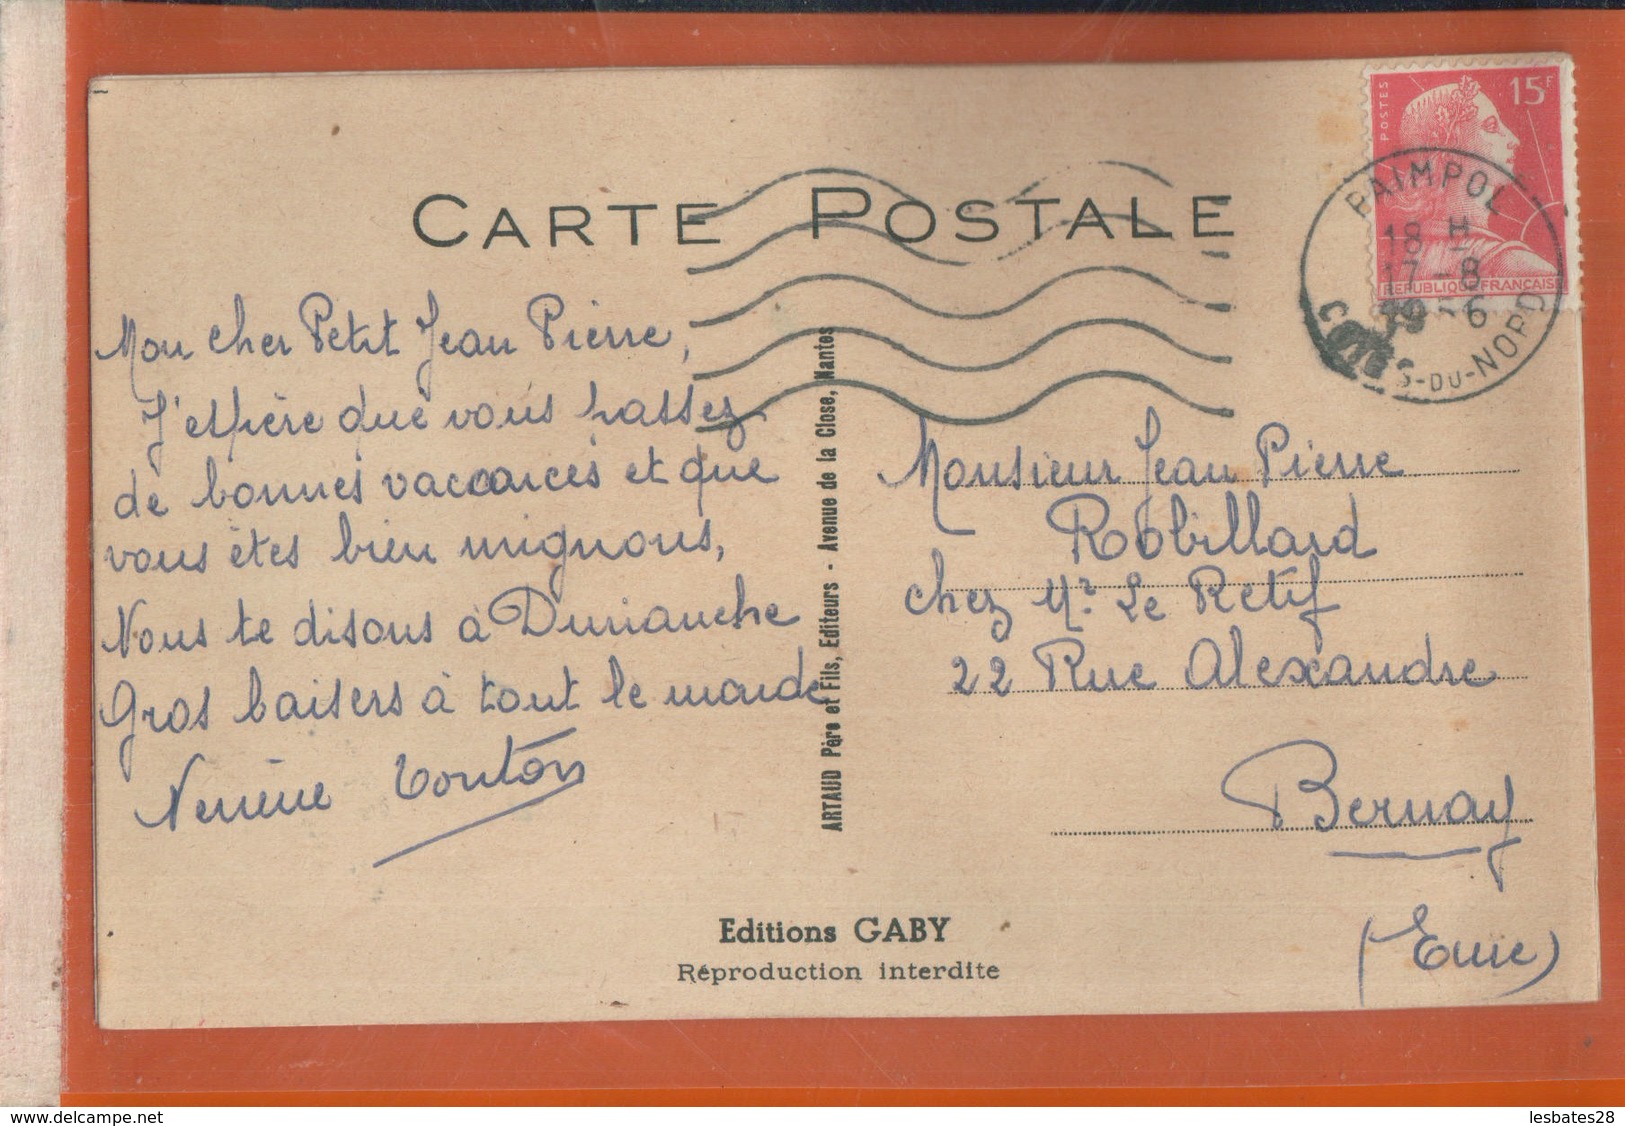 CARTE POSTALE
POSTES
15F
REPUBLIQUE FRANÇAISE
PAIMPOL
18 H
17-8
COTES-DU-NORD
Mon cher Petit Jean Pierre,
J'espère que vous passez
de bonnes vacances et que
vous êtes bien mignons,
Nous te disons à Dimanche
Gros baisers à tout le monde
Tonton
ARTAUD Père et Fils, Editeurs - Avenue de la Close, Nantes
Monsieur Jean Pierre
Robillard
chez Mr Le Retif
22 Rue Alexandre
Bernay
(Eure)
Editions GABY
Réproduction interdite
www.delcampe.net
lesbates28